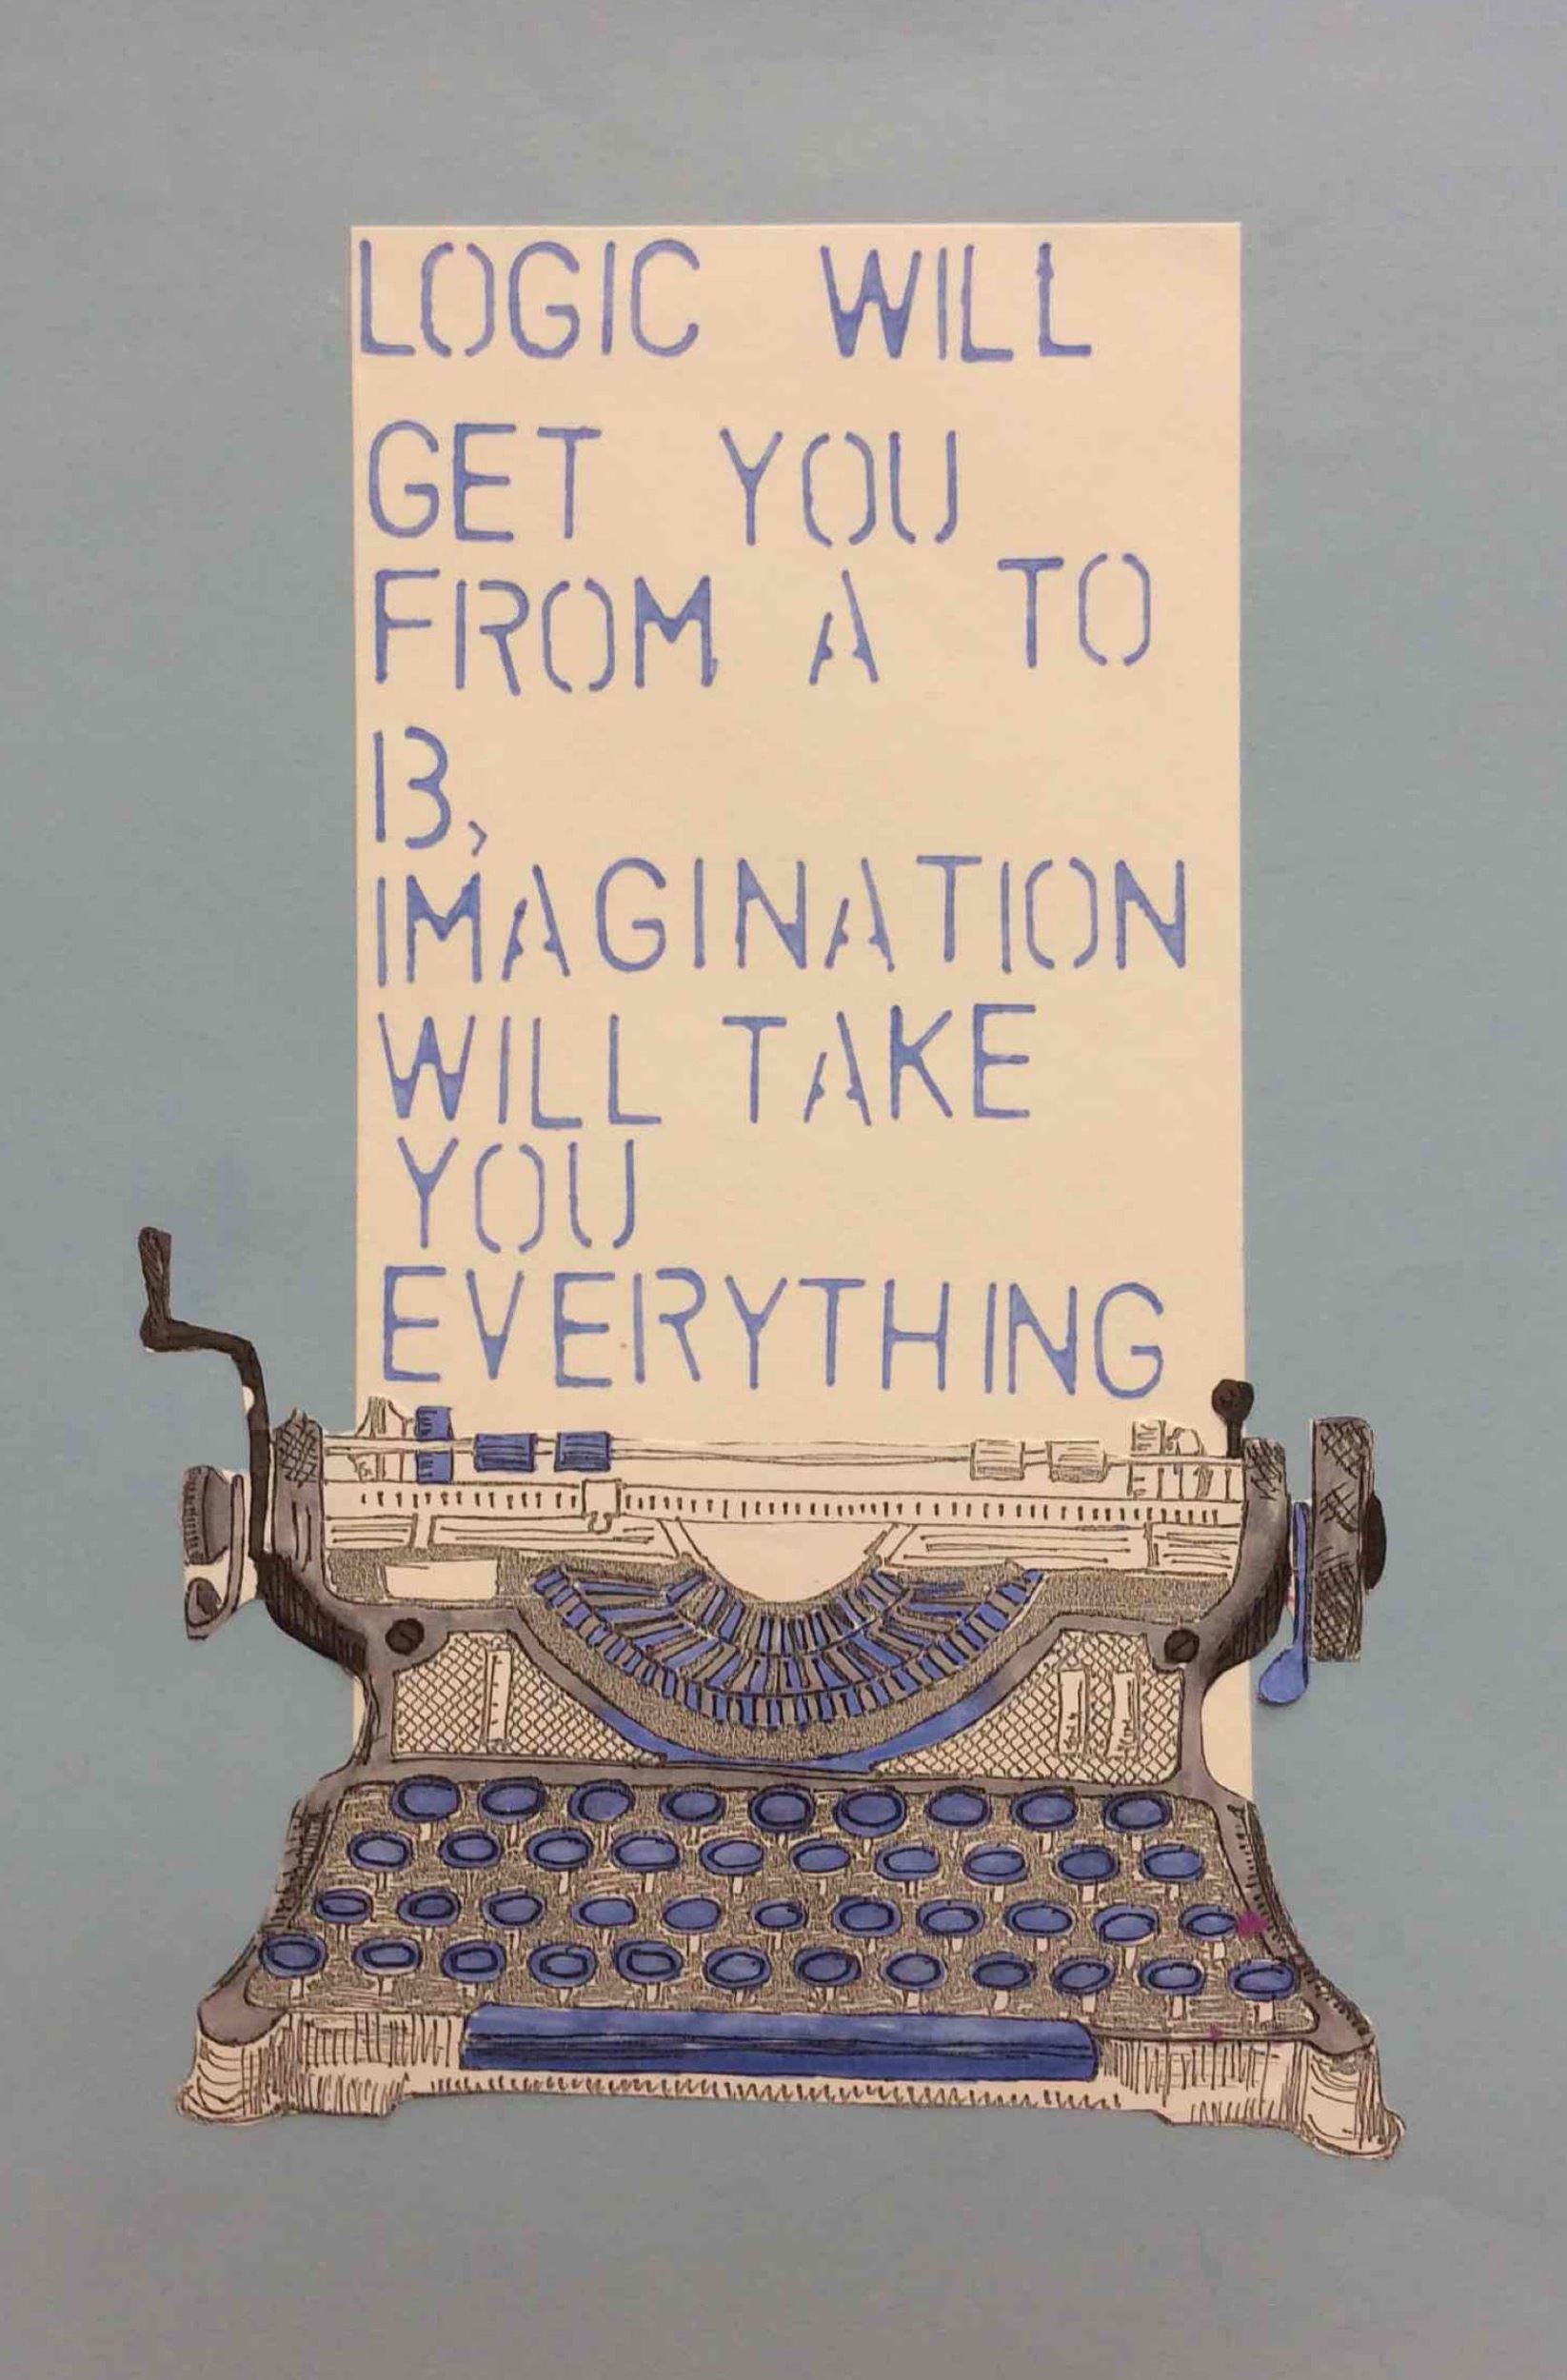 LOGIC WILL
GET YOU
FROM A TO
B,
IMAGINATION
WILL TAKE
YOU
EVERYTHING